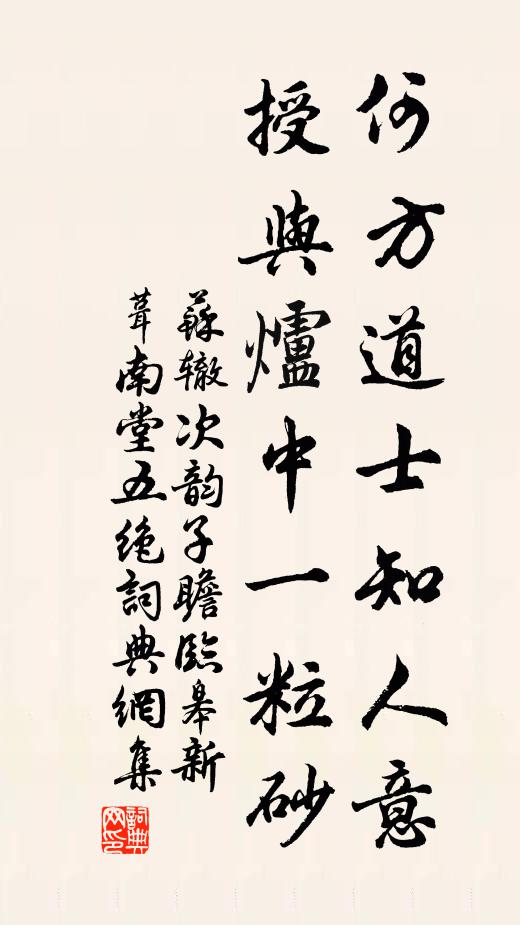 何方道士知人意
授與爐中一粒砂
蘇辙次韵子瞻臨皋新
葺南堂五绝詞典網集
詞典网印